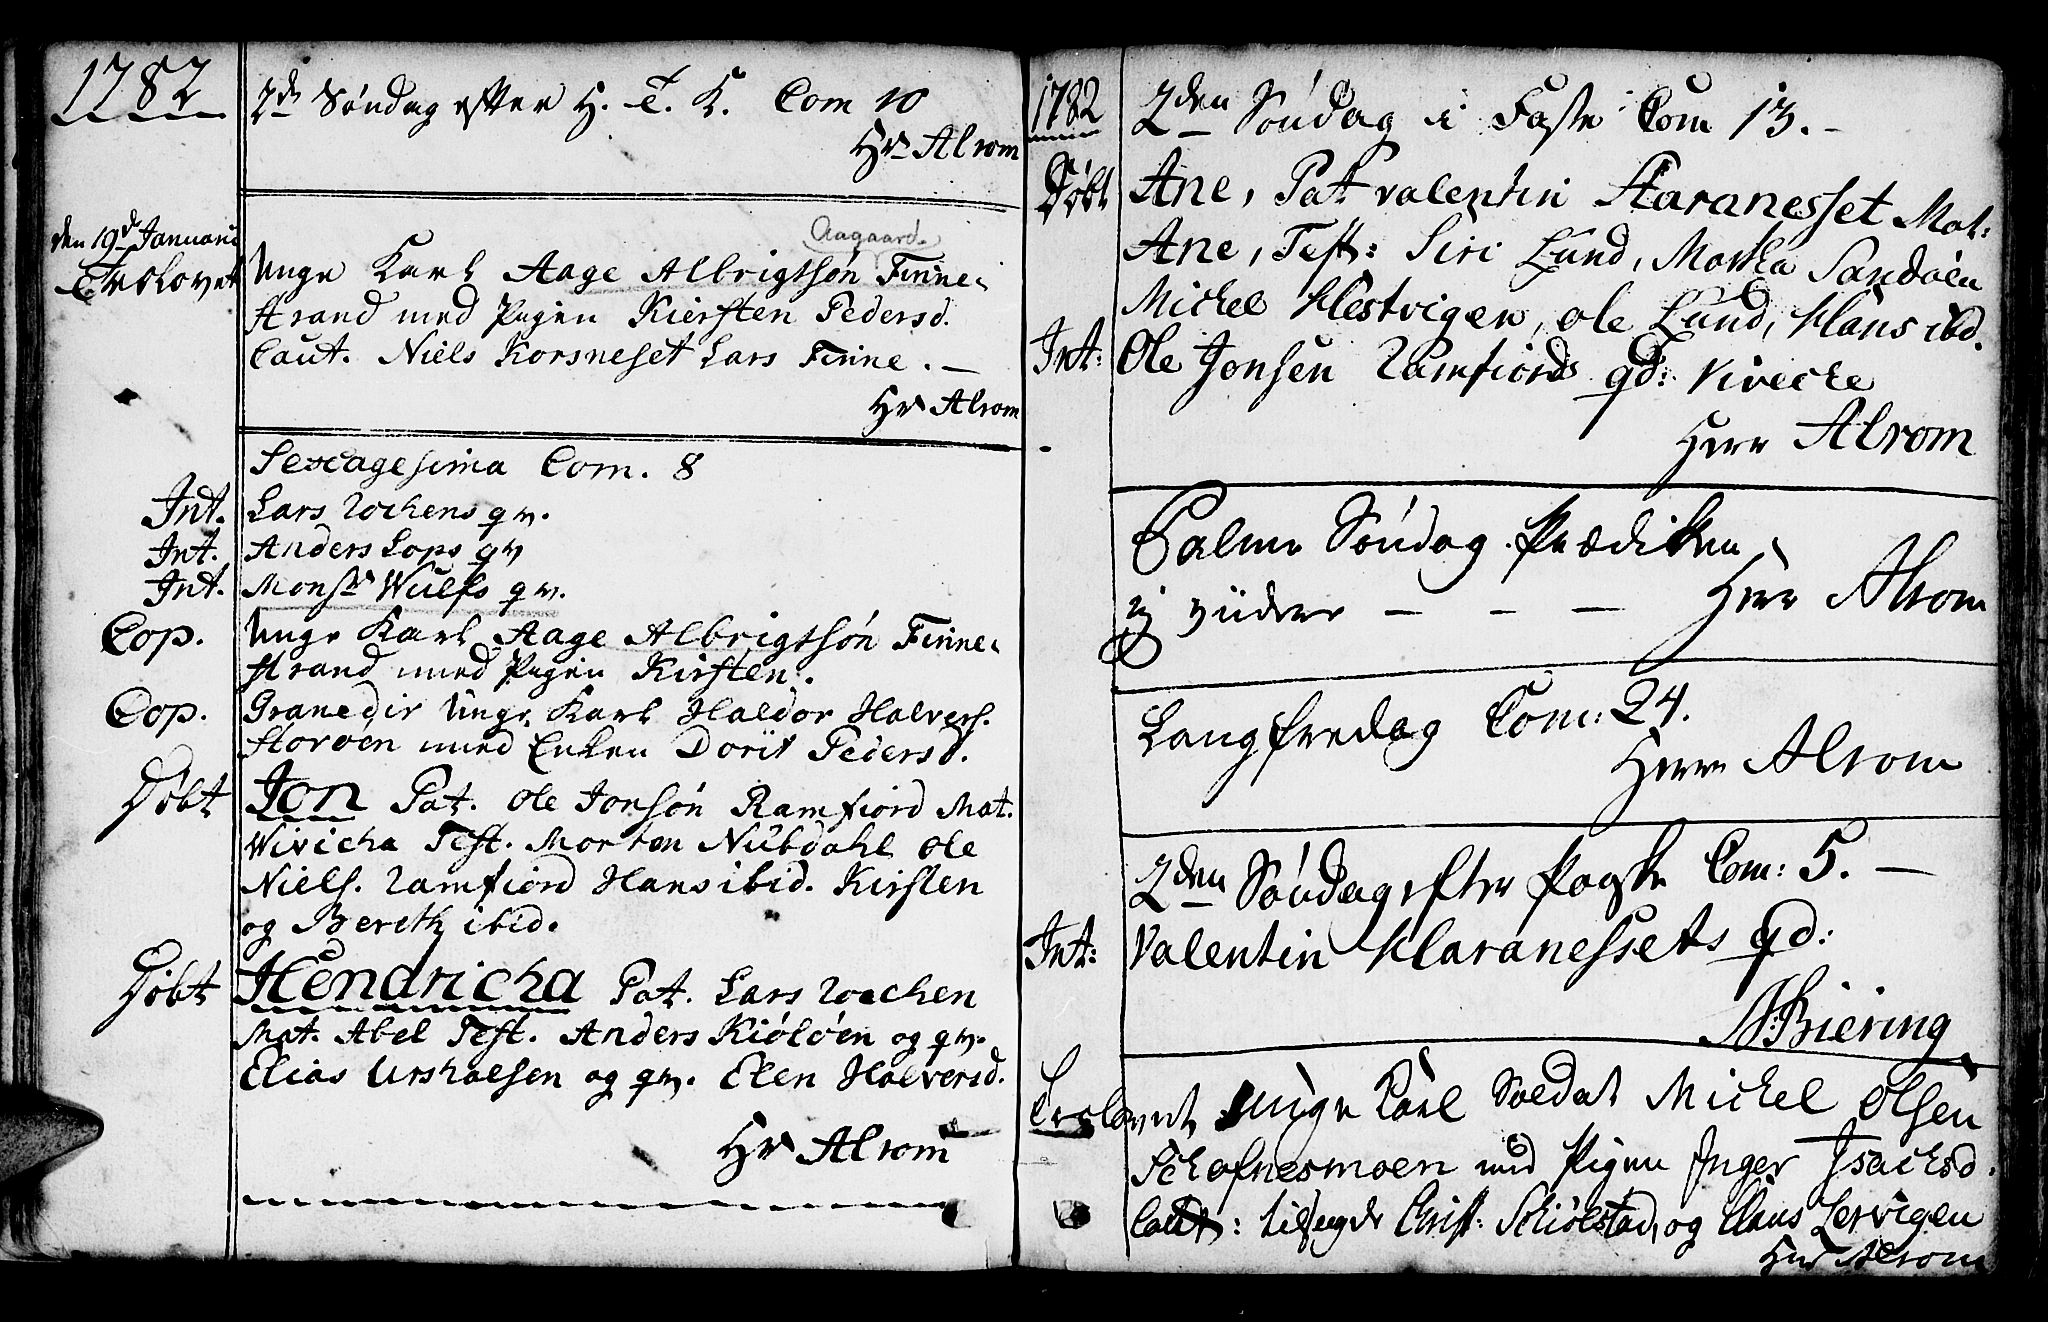 1782
2d Søndag efter H. T. K. Com 10
Hr Alrom
den 19d Januari
Trolovet
Aagaard
Unge Karl Aage Albrigtsøn Finne-
strand med Pigen Kiersten Pedersd.
Caut. Niels Korsneset Lars Finne. —
Hr Alrom
Sexagesima Com. 8
Int. Lars Rochens qv.
Int. Anders Lops qv
Int. Monsr Wulfs qv.
Cop. Unge Karl Aage Albrigtsøn Finne-
strand med Pigen Kirsten.
Cop. Granedir Unge Karl Haldor Halvers.
Storøen med Enken Dorit Pedersd.
Døbt Jon Pat. Ole Jonsøn Ramfiord Mat.
Wivicha Test. Morten Nubdahl Ole
Niels. Ramfiord Hans ibid. Kirsten
og Bereth ibid.
Døbt Hendricha Pat. Lars Rochen
Mat. Abel Test. Anders Kiöløen og qv.
Elias Ursholsen og qv. Elen Halversd.
Hr Alrom
1782
2den Søndag i Faste Com 13. -
Døbt Ane, Pat Valentin Klaranesset Mat:
Ane, Test: Siri Lund, Martha Sandøen
Michel Hestvigen, Ole Lund, Hans ibd.
Int: Ole Jonsen Ramfiords qd: Vivecke
Herr Alrom
Palme Søndag Prædiken
ej videre — — — Herr Alrom
Langfredag Com: 24.
Herr Alrom
2den Søndag efter Paaske Com: 5. —
Int: Valentin Klaranessets qd:
Biering
Trolovet Unge Carl Soldat Michel Olsen
Schofnesmoen med Pigen Inger Isachsd.
Caut: Christ: Schiölstad, og Claus Lervigen
Herr Alrom